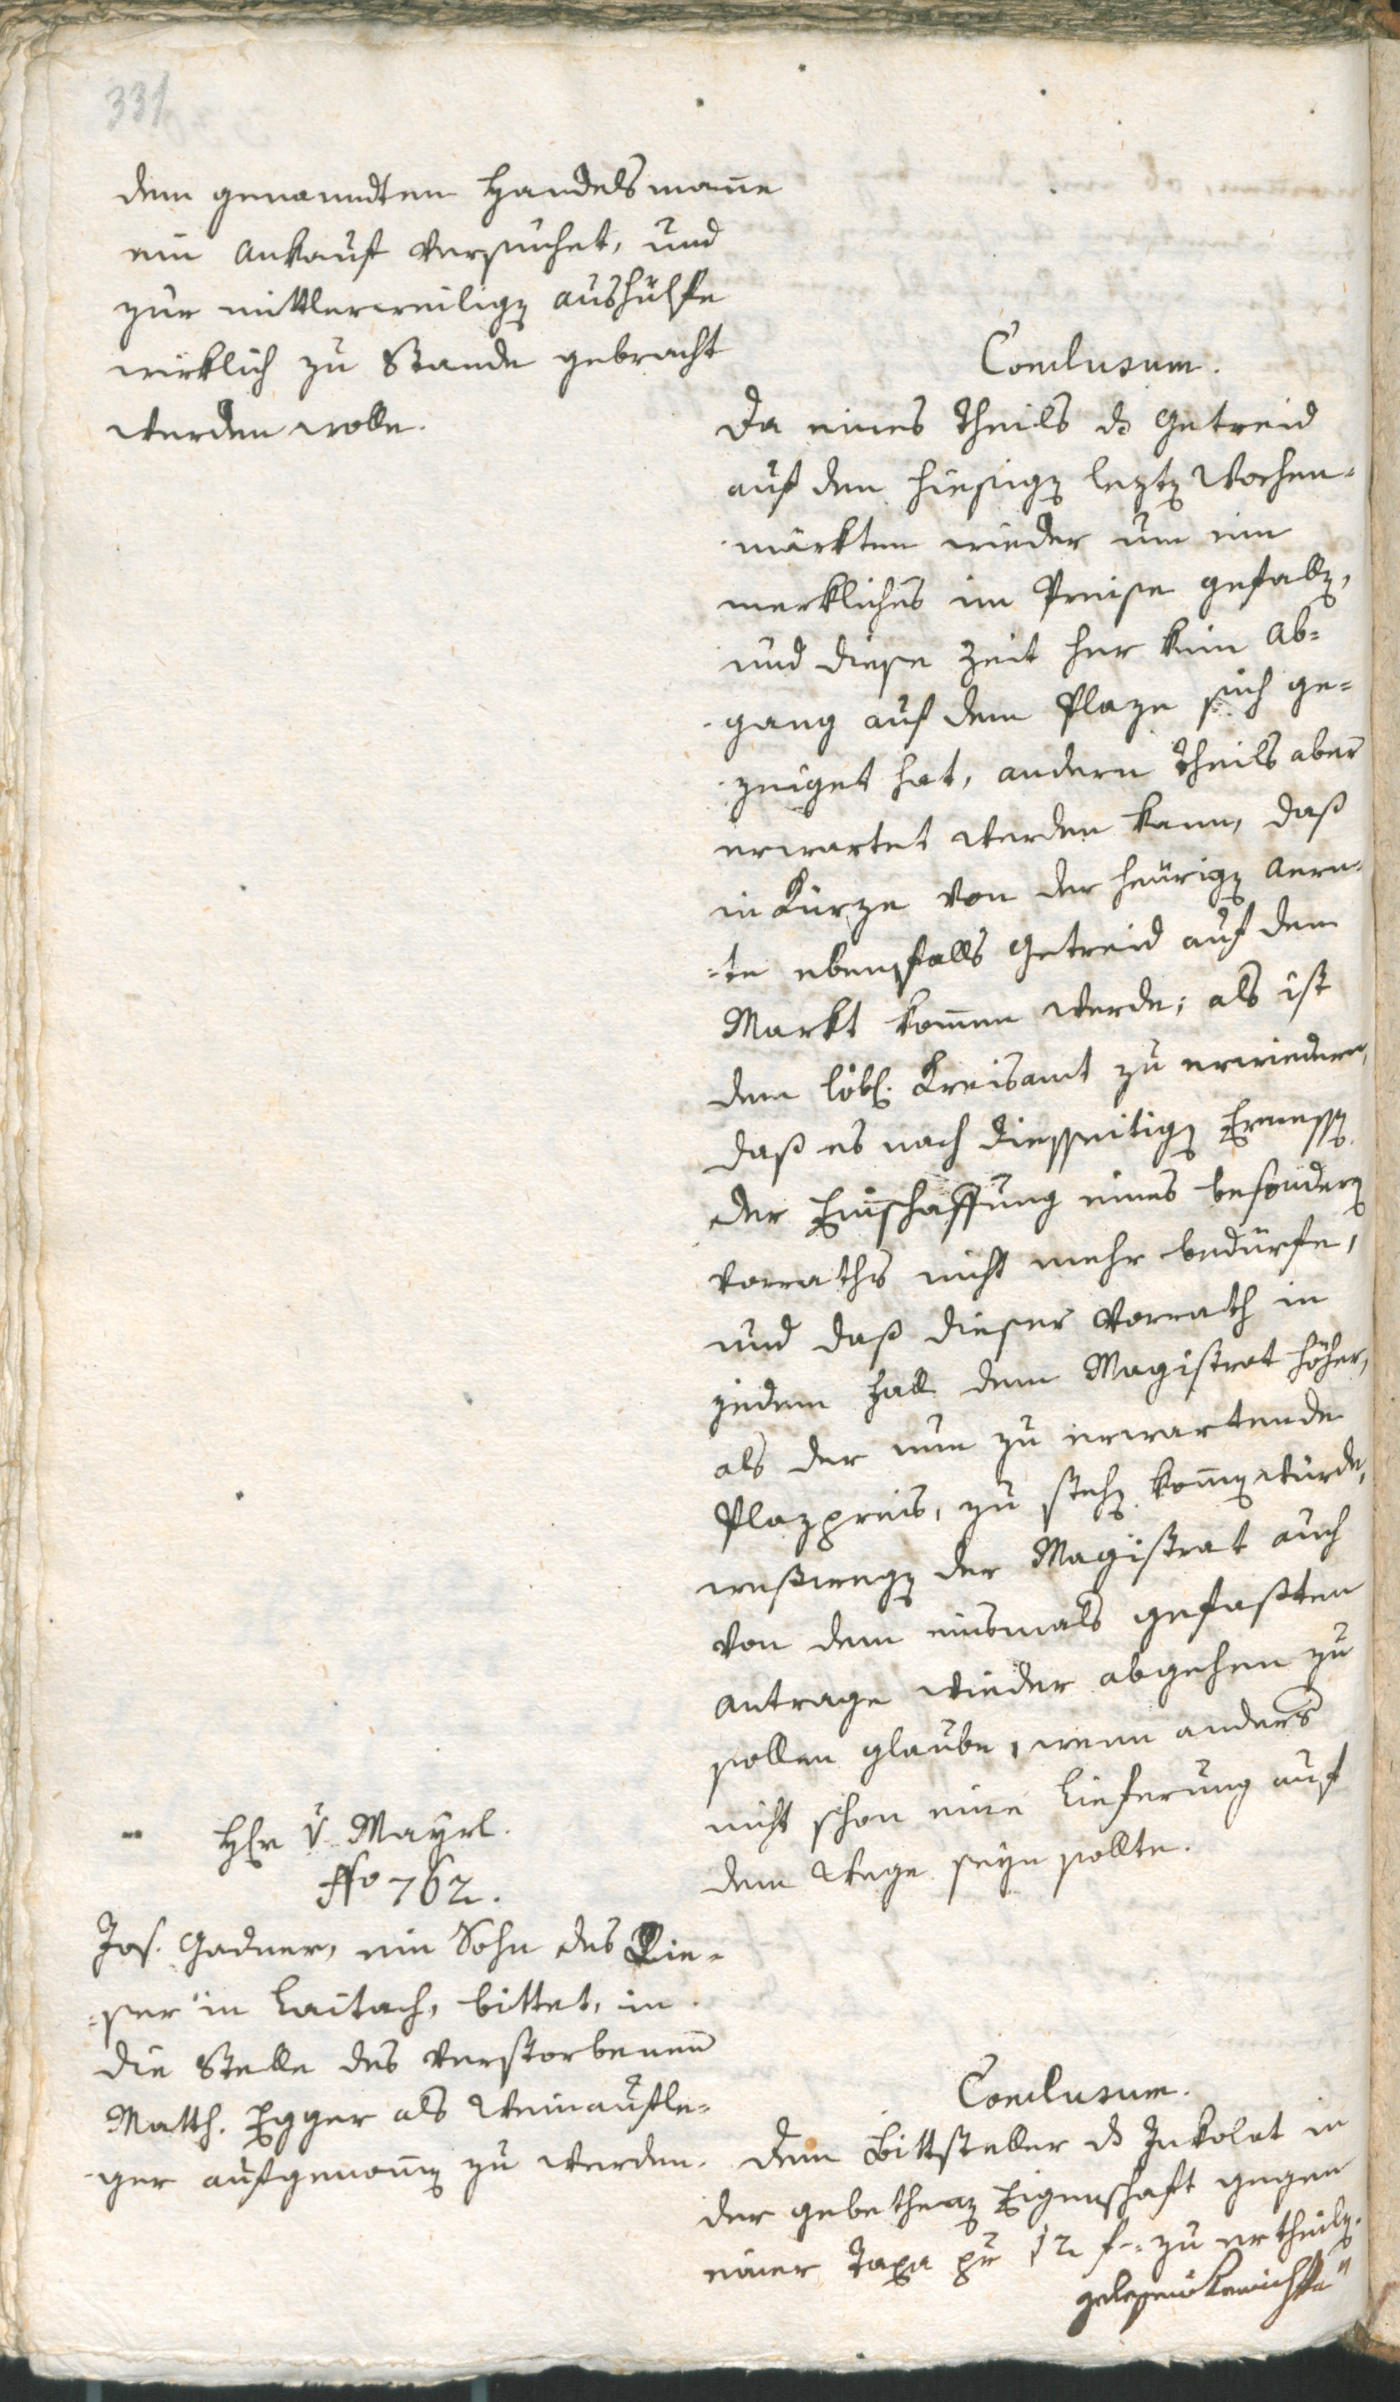 331
dem genanndten Handelsmanne
ein Ankauf versuchet, und
zur mittlerweilig aushülfe
wirklich zu Stande gebracht
werden wolle.
Conclusum.
Da eines Theils ds Getreid
auf den hiesig lezt Wochen-
märkten wieder um ein
merkliches im Preise gefall,
und diese Zeit her kein Ab-
gang auf dem Plaze sich ge-
zeiget hat, andern Theils aber
erwartet werden kann, daß
in Kürze von der heürig Aern-
-te ebenfalls Getreid auf dem
Markt kommen werde; als ist
dem löbl. Kreisamt zu erwiedern,
daß es nach diesseitig Ermess
der Einschaffung eines besonder
vorraths nicht mehr bedürfe,
und daß dieser Vorrath in
jedem Fall dem Magistrat höher,
als der nun zu erwartende
Plazpreis, zu steh komm würde,
weßweg der Magistrat auch
von dem einsmals gefaßten
Antrage wieder abgehen zu
sollen glaube, wenn anders
nicht schon eine Lieferung auf
dem Wege seyn sollte.
Hr v Mayrl.
No 762.
Jos. Gadner, ein Sohn des Kie-
-ser in Laitach, bittet, in
die Stelle des verstorbenen
Matth. Egger als Weinaufle-
ger aufgenomm zu werden.
Conclusum.
Dem Bittsteller ds Inkolat in
der gebethen Eigenschaft gegen
einer Taxa pr 12 f zu ertheil.